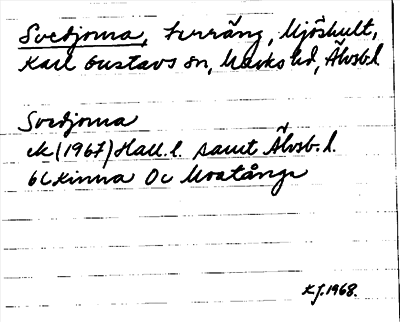 Svedjorna, Furräng, Mjöshult,
Karl Gustavs sn, Marks hd, Älvsb.l
Svedjorna
ek (1967) Hall. l. samt Älvsb. l.
6c Kinna 0c Moatånga
K.J. 1968.